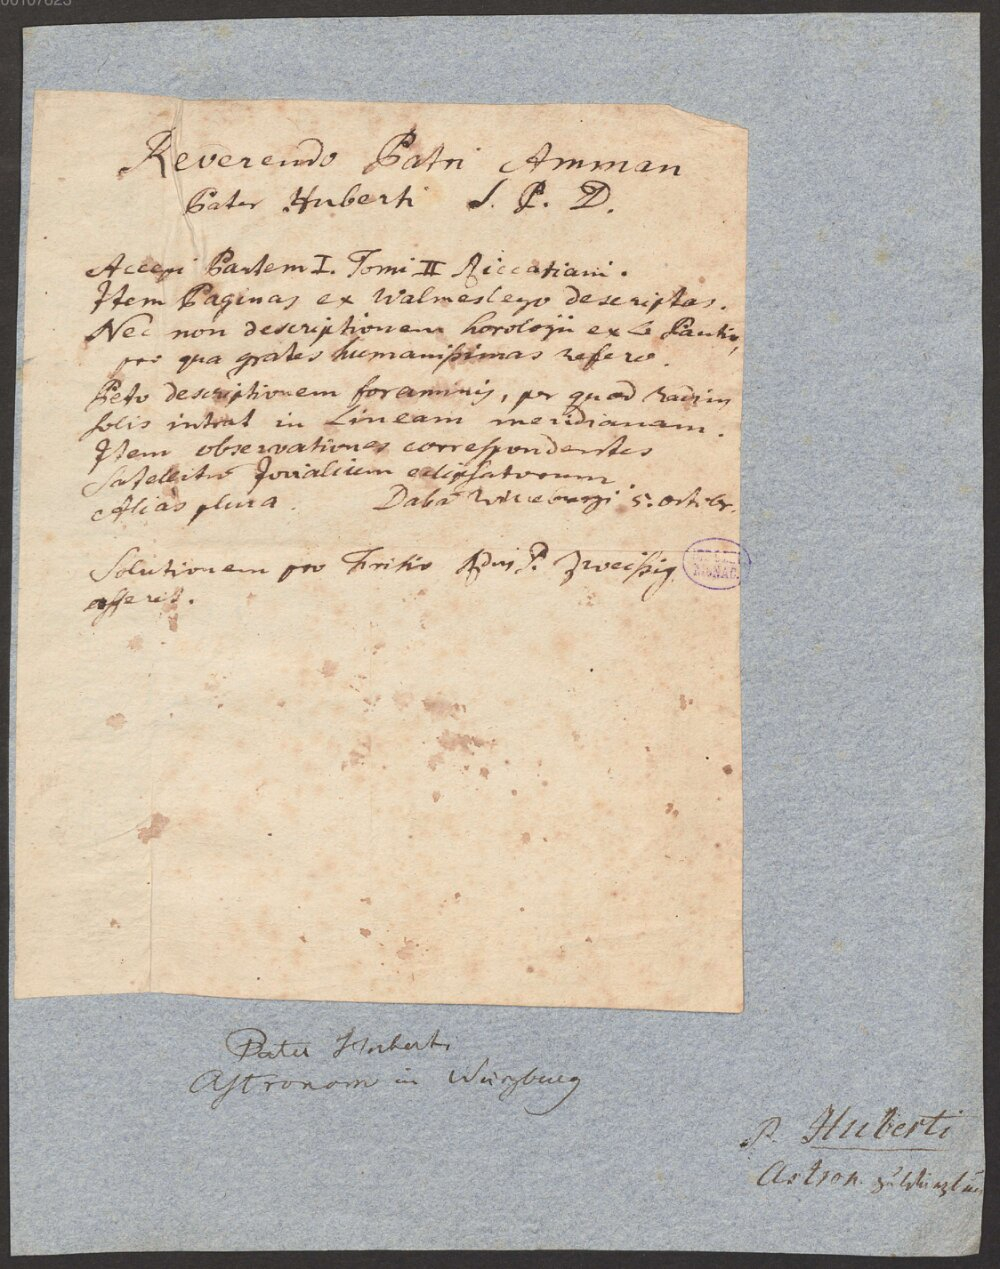 Reverendo Patri Amman
Pater Huberti S. P. D.
Accepi Partem I. Tomi II Riccatiani.
Item Paginas ex Walmeslego descriptas.
Nec non descriptionem horologii ex Le Pautio,
pro qua grates humanissimas refero.
Peto descriptionem foraminis, per quod radius
solis intrat in Lineam meridianam.
Item observationes correspondentes
Satellitū Jovialium eclipsatorum.
Alias plura. Dabā Wirceburgi 5. octobr.
Solutionem pro Frisio Rdus P. Zweissig
afferet.
MONAC.
Pater Huberti
Astronom in Würzburg
P. Huberti
Astron.